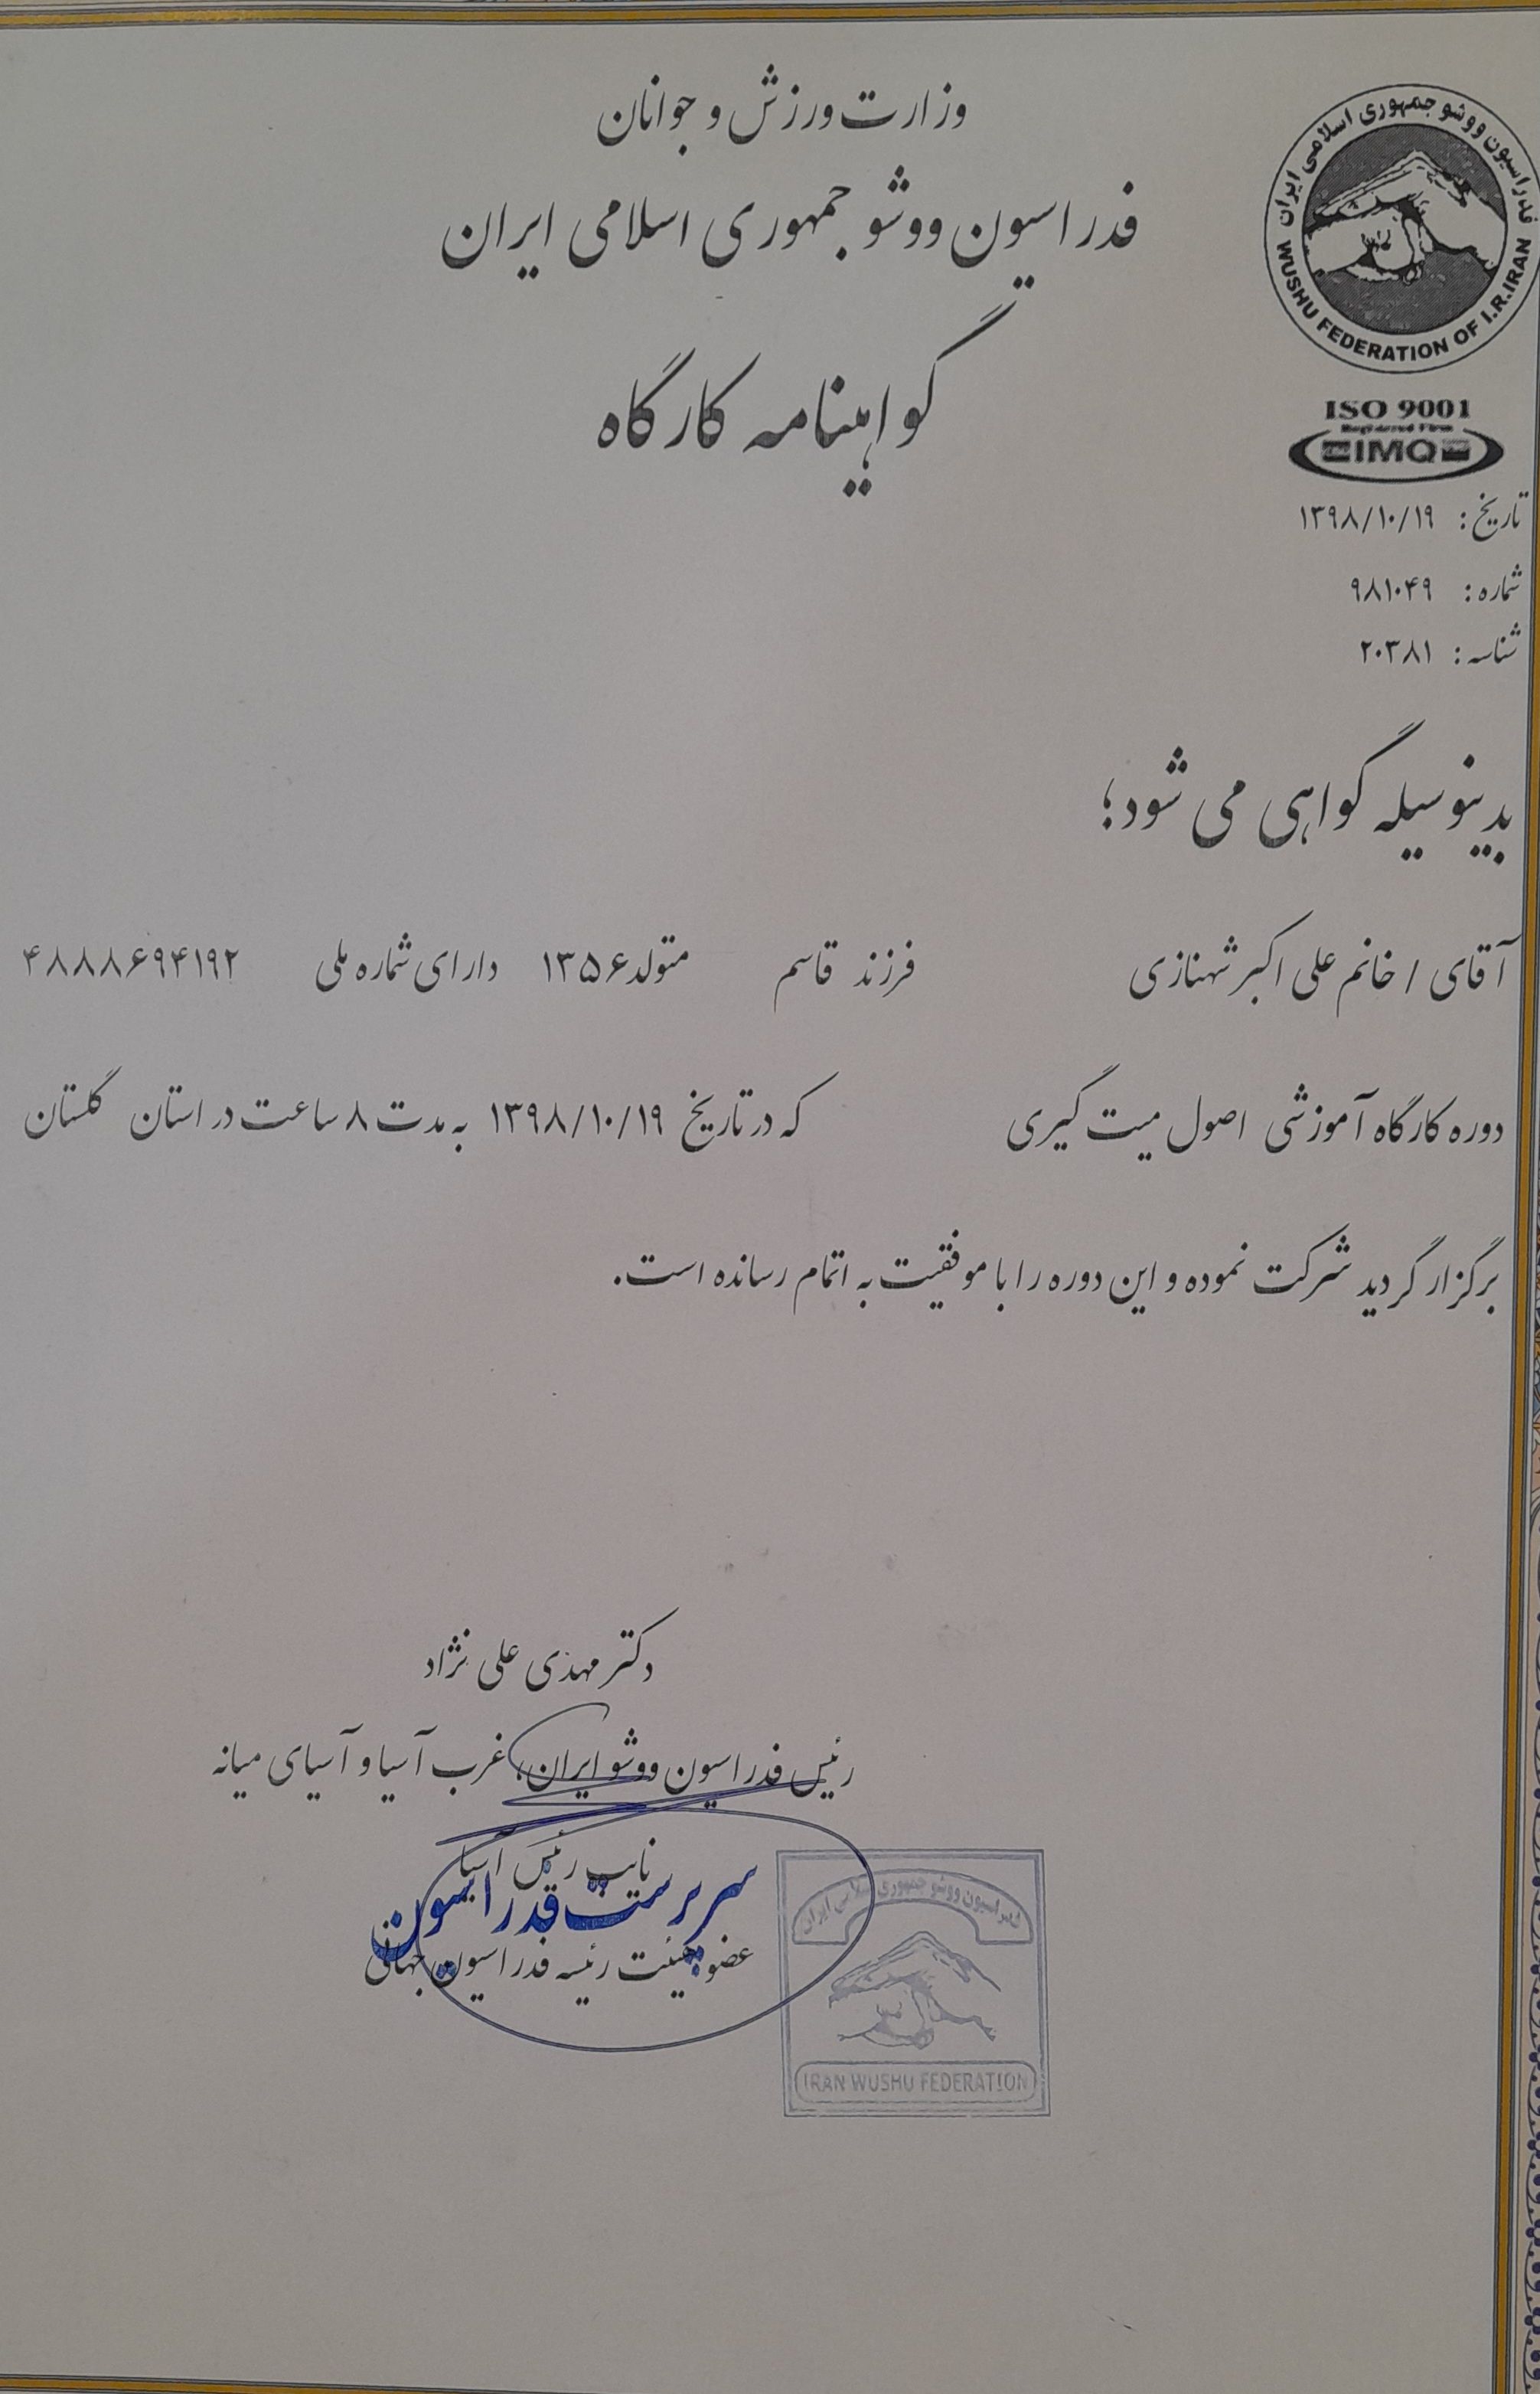 وزارت ورزش و جوانان
فدراسیون ووشو جمهوری اسلامی ایران
گواهینامه کارگاه
فدراسیون ووشو جمهوری اسلامی ایران
WUSHU FEDERATION OF I.R.IRAN
ISO 9001
Registered Firm
IMQ
تاریخ: ۱۳۹۸/۱۰/۱۹
شماره: ۹۸۱۰۴۹
شناسه: ۲۰۳۸۱
بدینوسیله گواهی می شود؛
آقای / خانم علی اکبر شهنازی فرزند قاسم متولد ۱۳۵۶ دارای شماره ملی ۴۸۸۸۶۹۴۱۹۲
دوره کارگاه آموزشی اصول میت گیری که در تاریخ ۱۳۹۸/۱۰/۱۹ به مدت ۸ ساعت در استان گلستان
برگزار گردید شرکت نموده و این دوره را با موفقیت به اتمام رسانده است.
دکتر مهدی علی نژاد
رئیس فدراسیون ووشو ایران، غرب آسیا و آسیای میانه
نایب رئیس آسیا
سرپرست فدراسیون
عضو هیئت رئیسه فدراسیون جهانی
فدراسیون ووشو جمهوری اسلامی ایران
IRAN WUSHU FEDERATION